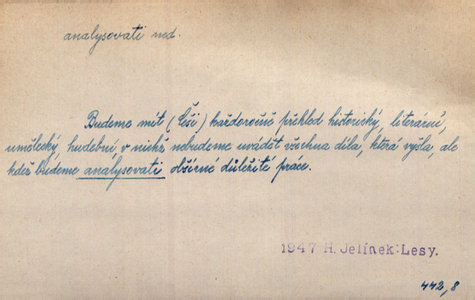 analysovati ned.
Budeme mít (Češi) každoročně přehled historický, literární,
umělecký, hudební v nichž nebudeme uvádět všechna díla, která vyšla, ale
kdež budeme analysovati obšírné důležité práce.
1947 H. Jelínek: Lesy.
442,8